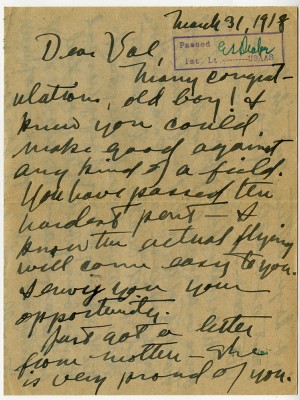 March 31, 1918
Passed
1st Lt. USAAS
Dear Val,
Many congrat-
ulations, old boy! I
knew you could
make good against
any kind of a field.
You have passed the
hardest part – I
know the actual flying
will come easy to you.
I envy you your
opportunity.
Just got a letter
from mother – she
is very proud of you.